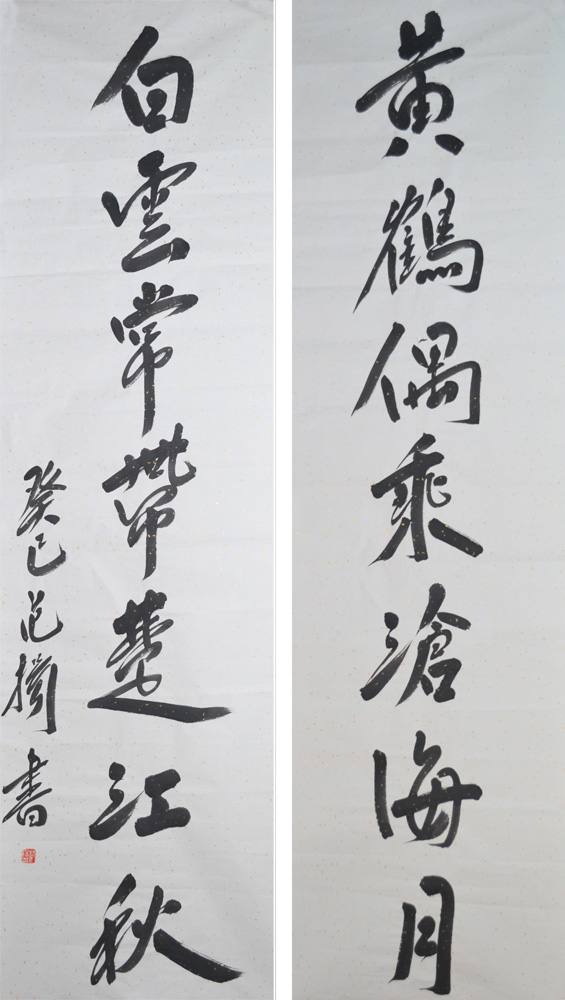 黃鶴偶乘滄海月
白雲常帶楚江秋
癸巳范擳書